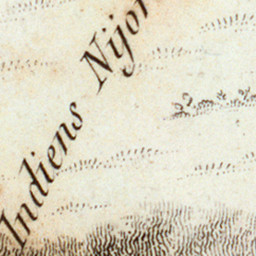 Indiens Nijor